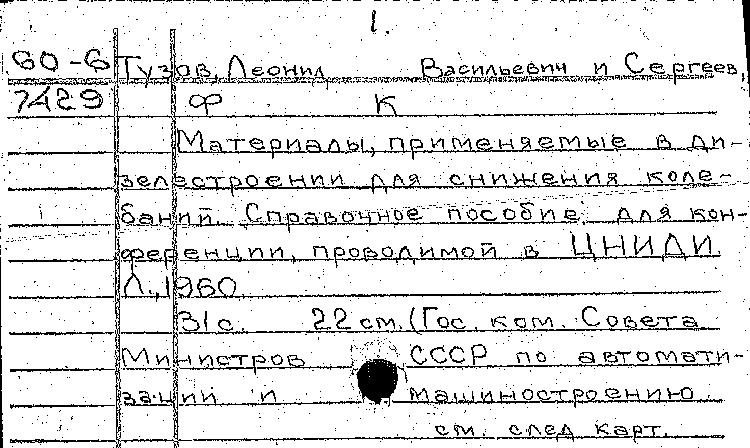 1.
60-6 Тузов, Леонид Васильевич и Сергеев,
7429 Ф К
Материалы, применяемые в ди-
зелестроении для снижения коле-
баний. Справочное пособие для кон-
ференции, проводимой в ЦНИДИ
Л., 1960.
31 с. 22 см. (Гос. ком. Совета
Министров СССР по автомати-
зации и машиностроению
см. след карт.